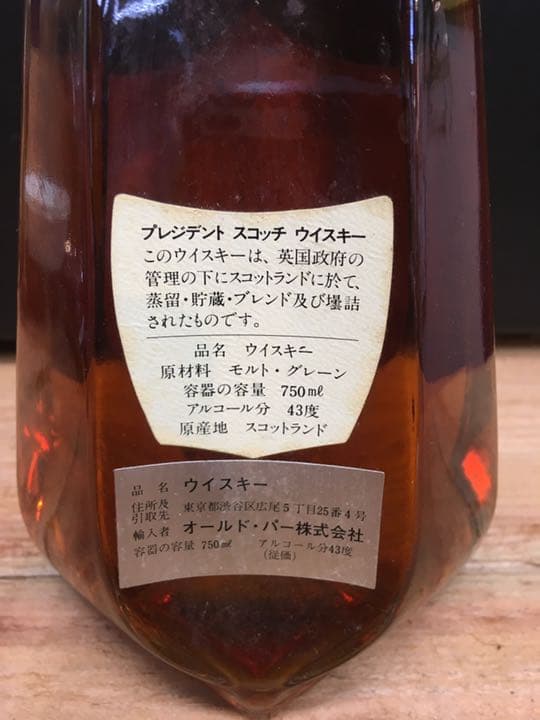 プレジデント スコッチ ウイスキー
このウイスキーは、英国政府の
管理の下にスコットランドに於て、
蒸留・貯蔵・ブレンド及び壜詰
されたものです。
品名 ウイスキー
原材料 モルト・グレーン
容器の容量 750㎖
アルコール分 43度
原産地 スコットランド
品名 ウイスキー
住所及
引取先 東京都渋谷区広尾5丁目25番4号
輸入者 オールド・パー株式会社
容器の容量 750㎖ アルコール分43度
(従価)